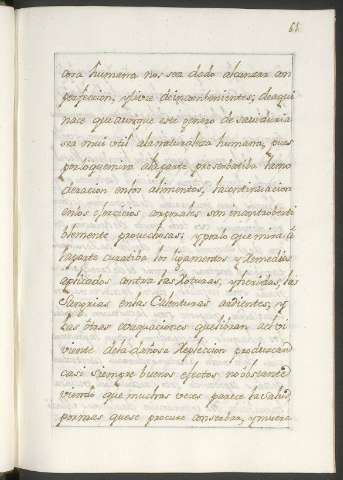 68
cosa humana nos sea dado alcanzar con
perfeccion, y libre de inconbenientes; de aqui
nace que aunque este genero de sauiduria
sea mui util ala naturaleza humana, pues
por lo que mira a la parte preserbatiba la mo
deracion en los alimentos, la continuacion
en los ejercicios corporales son incontroberti
blemente prouechosas; y por lo que mira à
la parte curatiba los ligamentos y Remedios
aplicados contra las Roturas, y heridas, las
Sangrias en las Calenturas ardientes, y
las otras evaquaciones que libran al vi
viente de la dañosa Replecion produscan
casi siempre buenos efectos no obstante
viendo que muchas veces parece la salud,
por mas que se procure conserbar, y muere